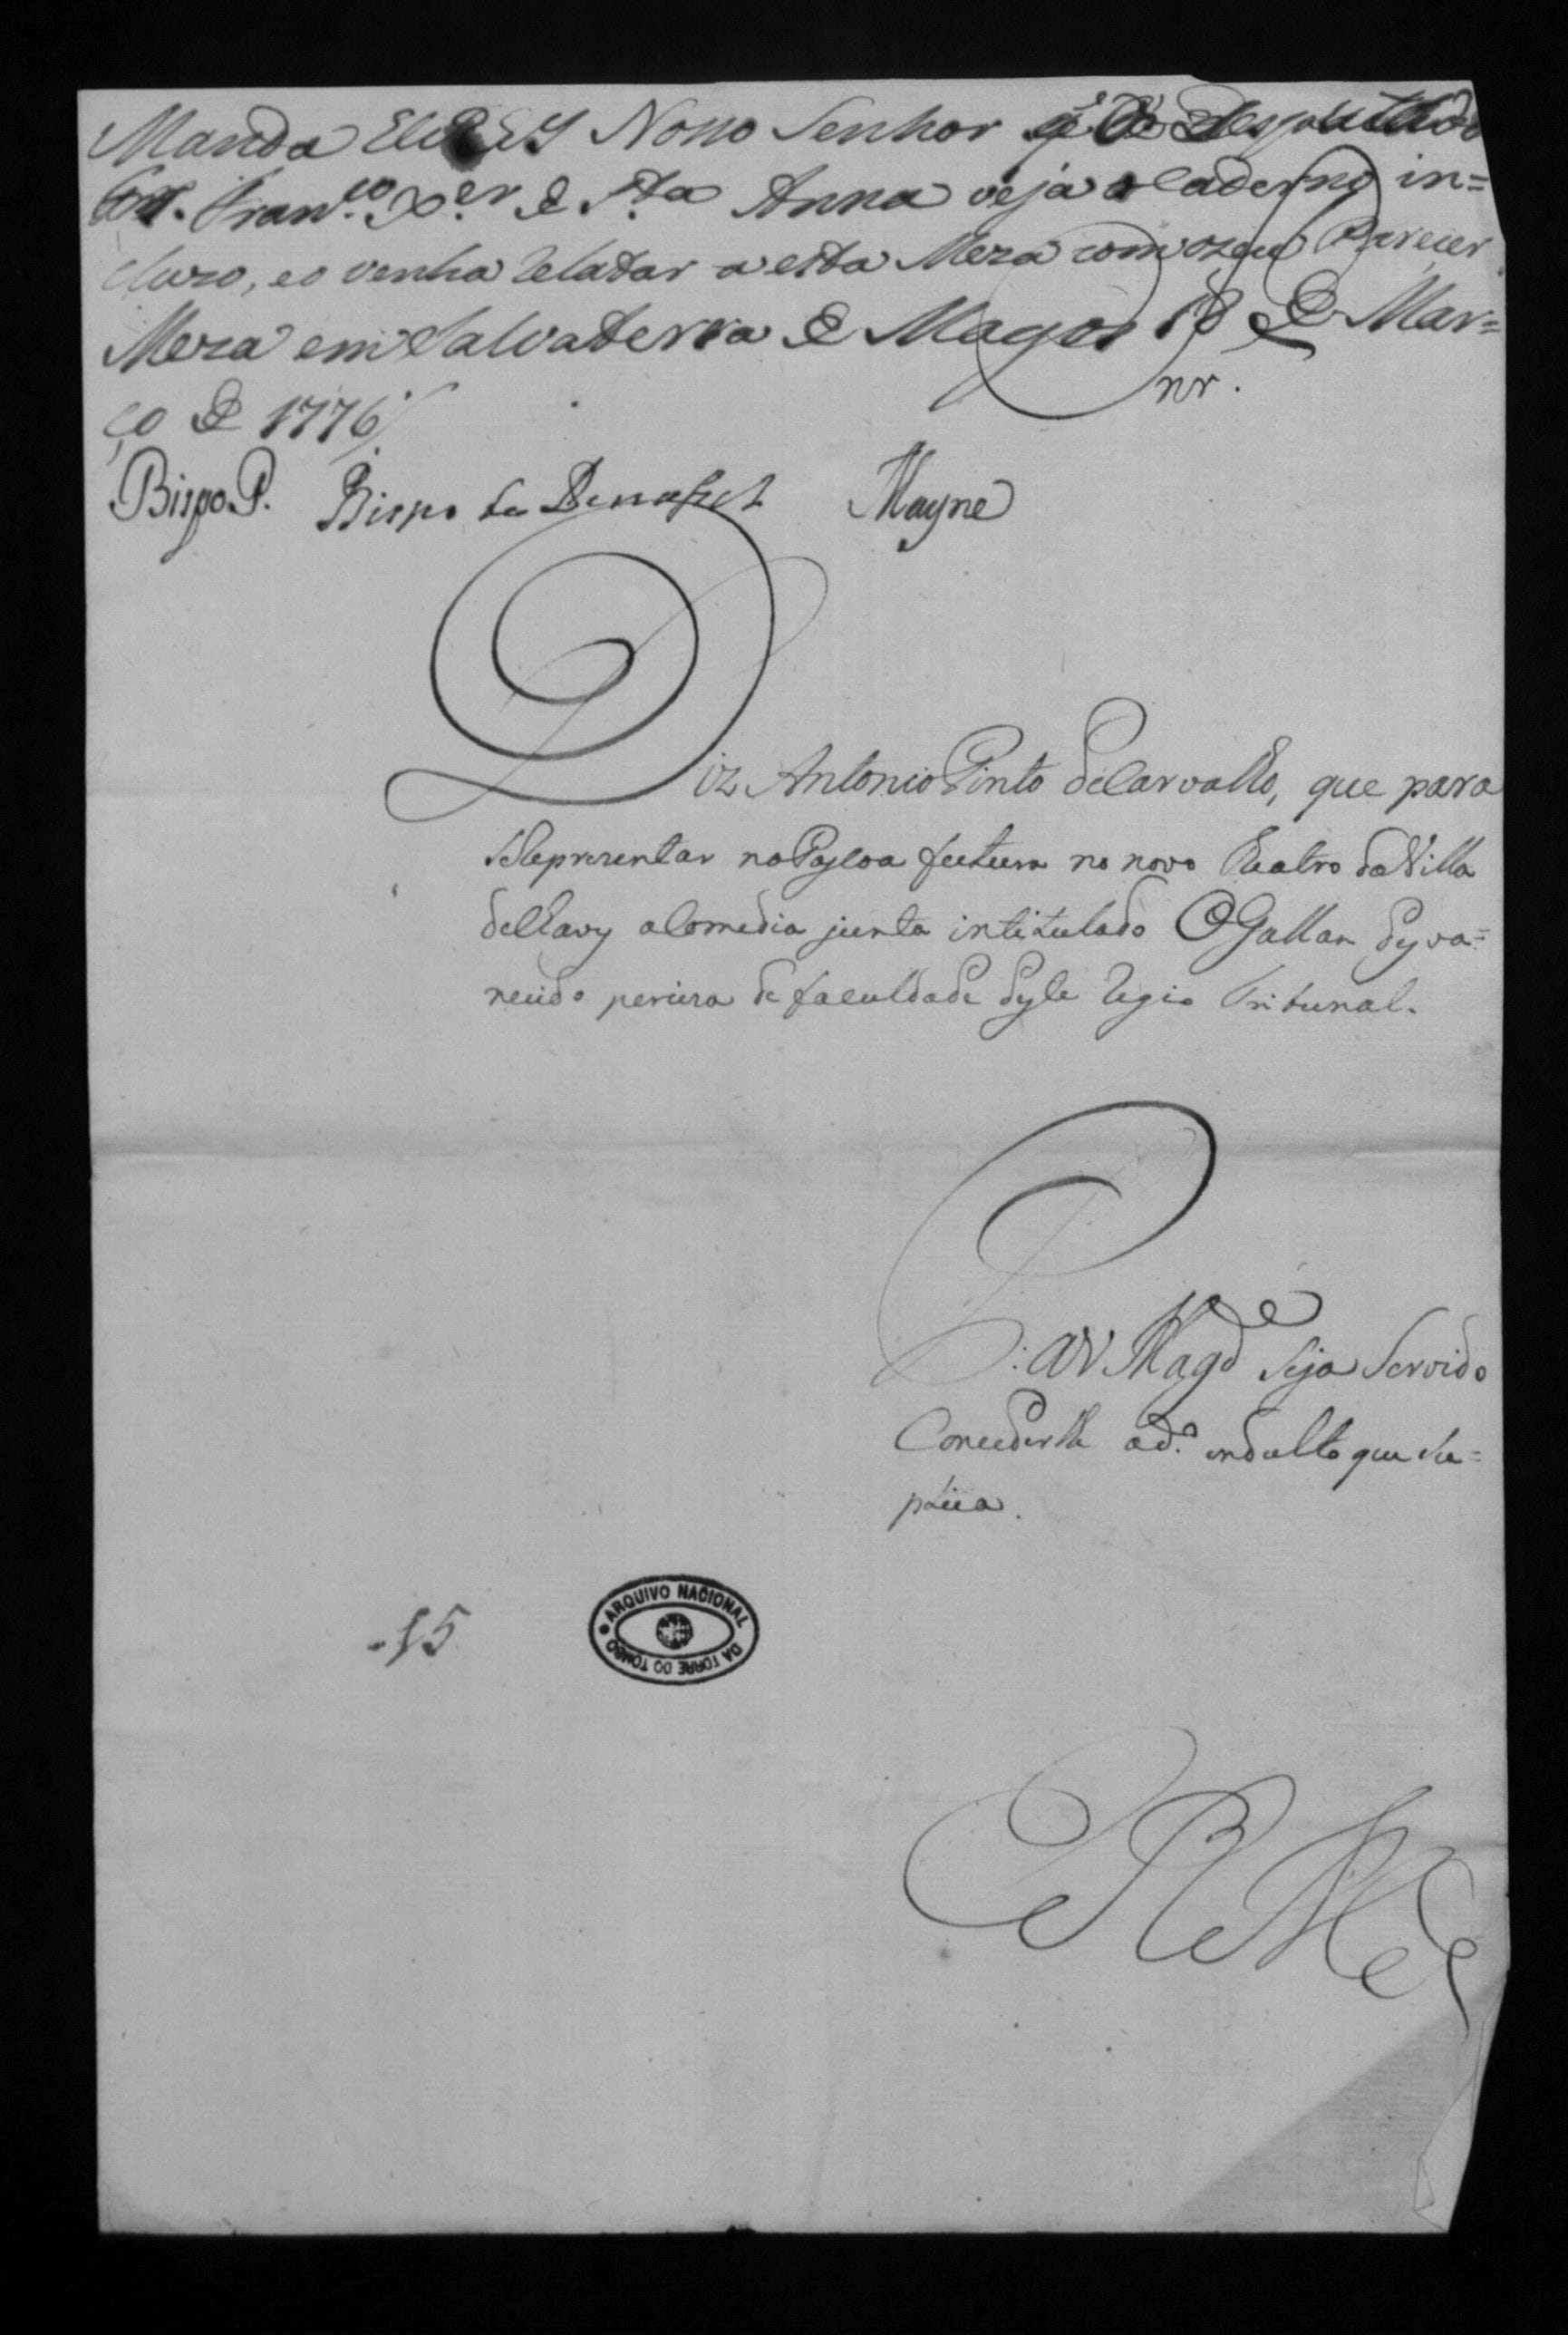 Manda ElREY Nosso Senhor q̃ o Deputado
Fran.co X.er de S.ta Anna veja o Caderno in=
cluzo, e o venha relatar a esta Meza com o seu Parecer
Meza em Salvaterra de Magos 18 de Mar=
ço de 1776
nr.
Bispo P. Bispo de Penafiel Mayne
Diz Antonio Pinto de Carvalho, que para
Reprezentar na Pascoa futura no novo Teatro da Villa
de Chavy a Comedia junta intitulado O Gallan Desva=
necido perciza de faculdade deste Regio Tribunal.
P: a V Magd.e seja Servido
Concederlhe o d.o indulto que Su=
plica.
ERM.ce
-15
ARQUIVO NACIONAL DA TORRE DO TOMBO